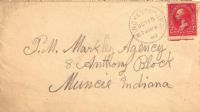 P.M. Markley Agency
8 Anthony Block
Muncie Indiana